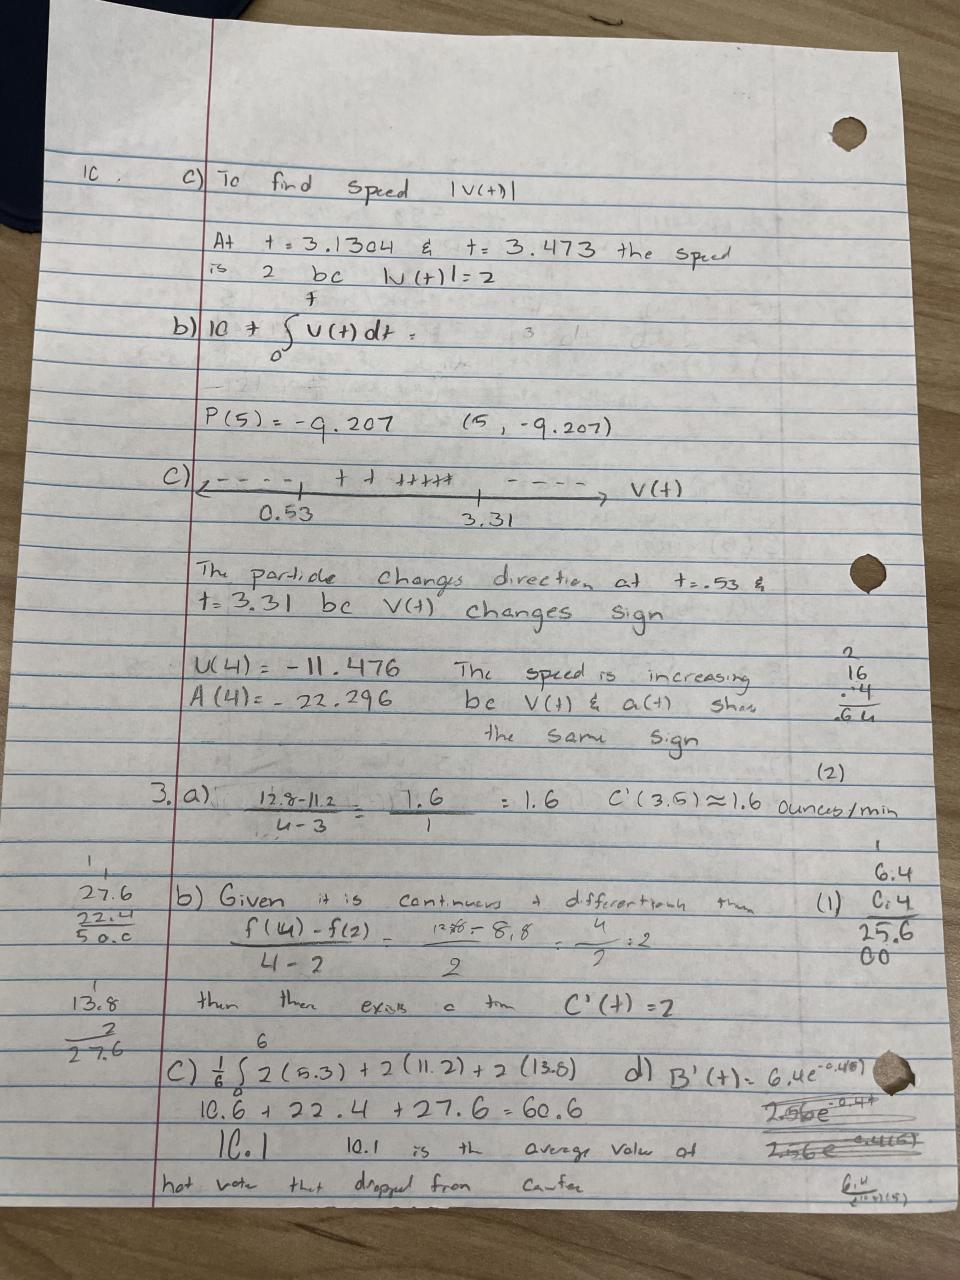 1C. c) To find speed |v(t)|
At t=3.1304 & t=3.473 the speed
is 2 bc |v(t)|=2
b) 10 + ∫ v(t)dt =
0
P(5) = -9.207 (5, -9.207)
c) - - - - + + +++++ - - - - v(t)
0.53 3.31
The particle changes direction at t=.53 &
t=3.31 bc v(t) changes sign
v(4) = -11.476 The speed is increasing
A(4) = -22.296 bc v(t) & a(t) share
the same sign
2
16
.4
.64
(2)
3. a) 12.8-11.2 / 4-3 = 1.6 / 1 = 1.6 C'(3.5) ≈ 1.6 ounces/min
1
6.4
b) Given it is continuous + differentiable then (1) 0.4
f(4) - f(2) / 4-2 = 12.8 - 8.8 / 2 = 4 / 2 = 2
25.6
00
1
27.6
22.4
50.0
then there exists a tim C'(t) = 2
1
13.8
2
27.6
c) 1/6 ∫ 2(5.3) + 2(11.2) + 2(13.8) d) B'(t) = 6.4e
6
0
10.6 + 22.4 + 27.6 = 60.6 2.56e^-0.4t
10.1 10.1 is th average value of 2.56e
hot that dropped from
6.4